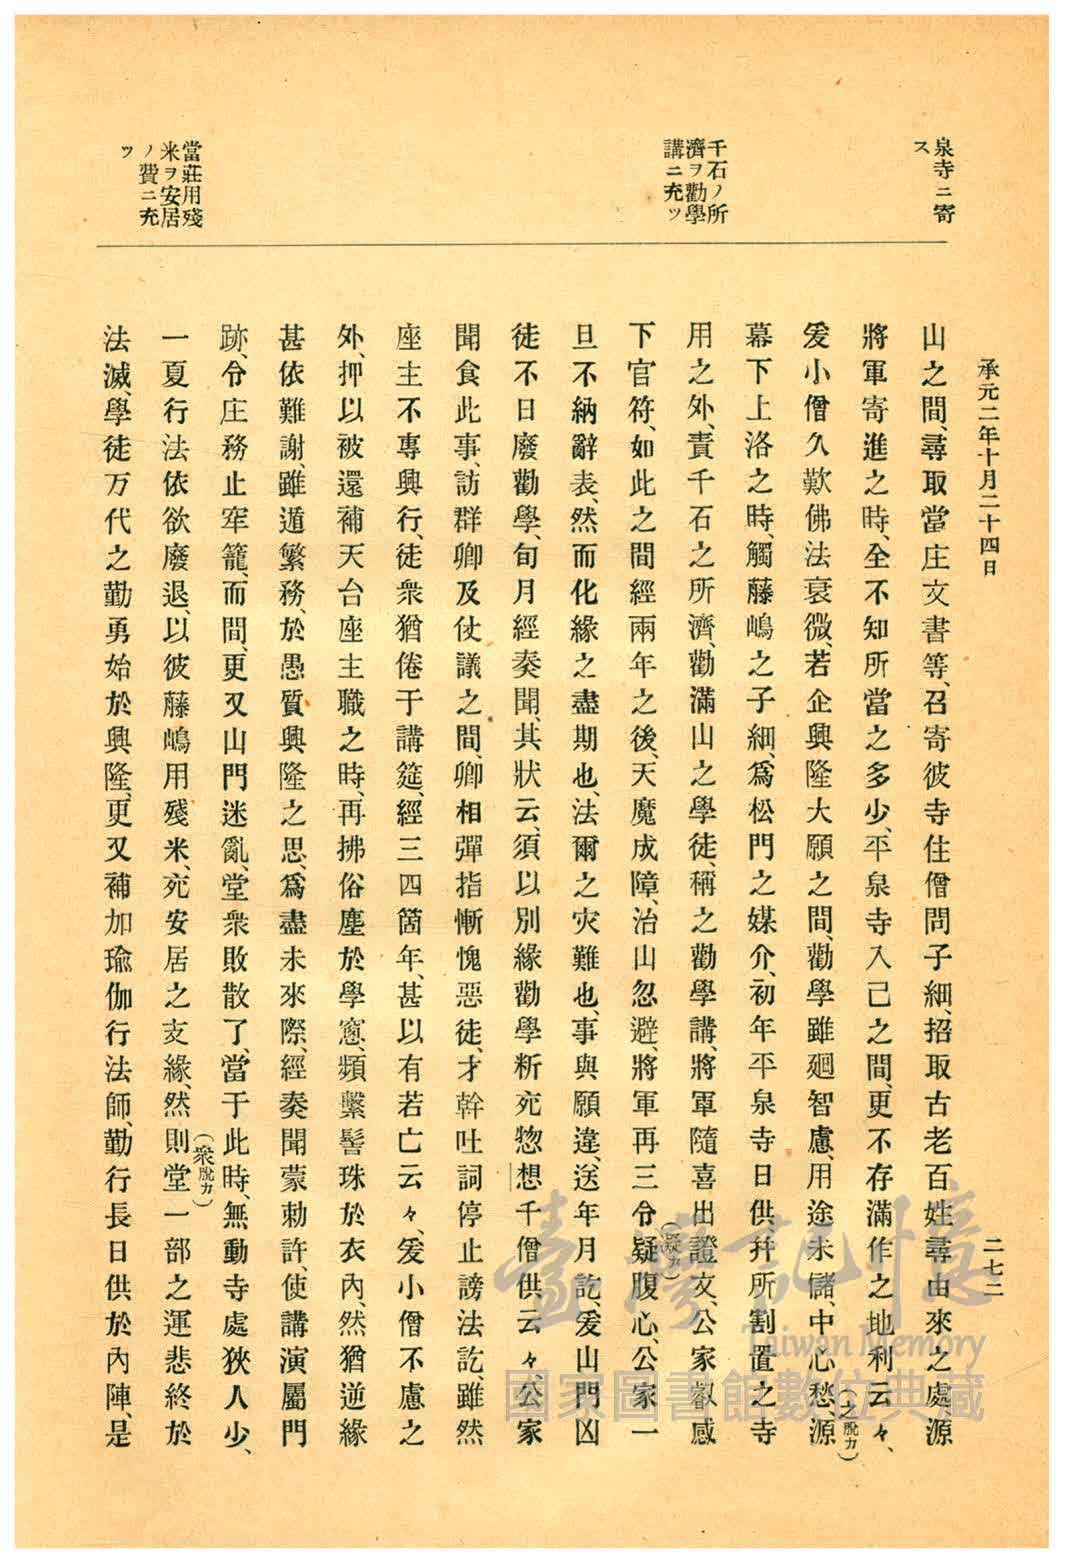 承元二年十月二十四日
二七二
泉寺ニ寄
ス
千石ノ所
濟ヲ勸學
講ニ充ツ
當莊用殘
米ヲ安居
ノ費ニ充
ツ
山之間、尋取當庄文書等、召寄彼寺住僧問子細、招取古老百姓尋由來之處、源
將軍寄進之時、全不知所當之多少、平泉寺入己之間、更不存滿作之地利云々、
爰小僧久歎佛法衰微、若企興隆大願之間、勸學雖廻智慮、用途未儲、中心愁、源(之脫カ)
幕下上洛之時、觸藤嶋之子細、爲松門之媒介、初年平泉寺日供幷所割置之寺
用之外、責千石之所濟、勸滿山之學徒、稱之勸學講、將軍隨喜出證文、公家叡感
下官符、如此之間經兩年之後、天魔成障、治山忽避、將軍再三令疑腹心、公家一(疑カ)
旦不納辭表、然而化緣之盡期也、法爾之灾難也、事與願違、送年月訖、爰山門凶
徒不日廢勸學、旬月經奏聞、其狀云、須以別緣勸學斫充惣想千僧供云々、公家
聞食此事、訪群卿及仗議之間、卿相彈指慚愧惡徒、才幹吐詞停止謗法訖、雖然
座主不專興行、徒衆猶倦于講筵、經三四箇年、甚以有若亡云々、爰小僧不慮之
外、押以被還補天台座主職之時、再拂俗塵於學窓、頻繫髻珠於衣內、然猶逆緣
甚依難謝、雖遁繁務、於愚質興隆之思、爲盡未來際、經奏聞蒙勅許、使講演屬門
跡、令庄務止牢籠、而間、更又山門迷亂、堂衆敗散了、當于此時、無動寺處狹人少、
一夏行法依欲廢退、以彼藤嶋用殘米、充安居之支緣、然則堂一部之運悲終於(衆脫カ)
法滅、學徒万代之勤勇始於興隆、更又補加瑜伽行法師、勤行長日供於內陣、是
臺灣記憶
Taiwan Memory
國家圖書館數位典藏